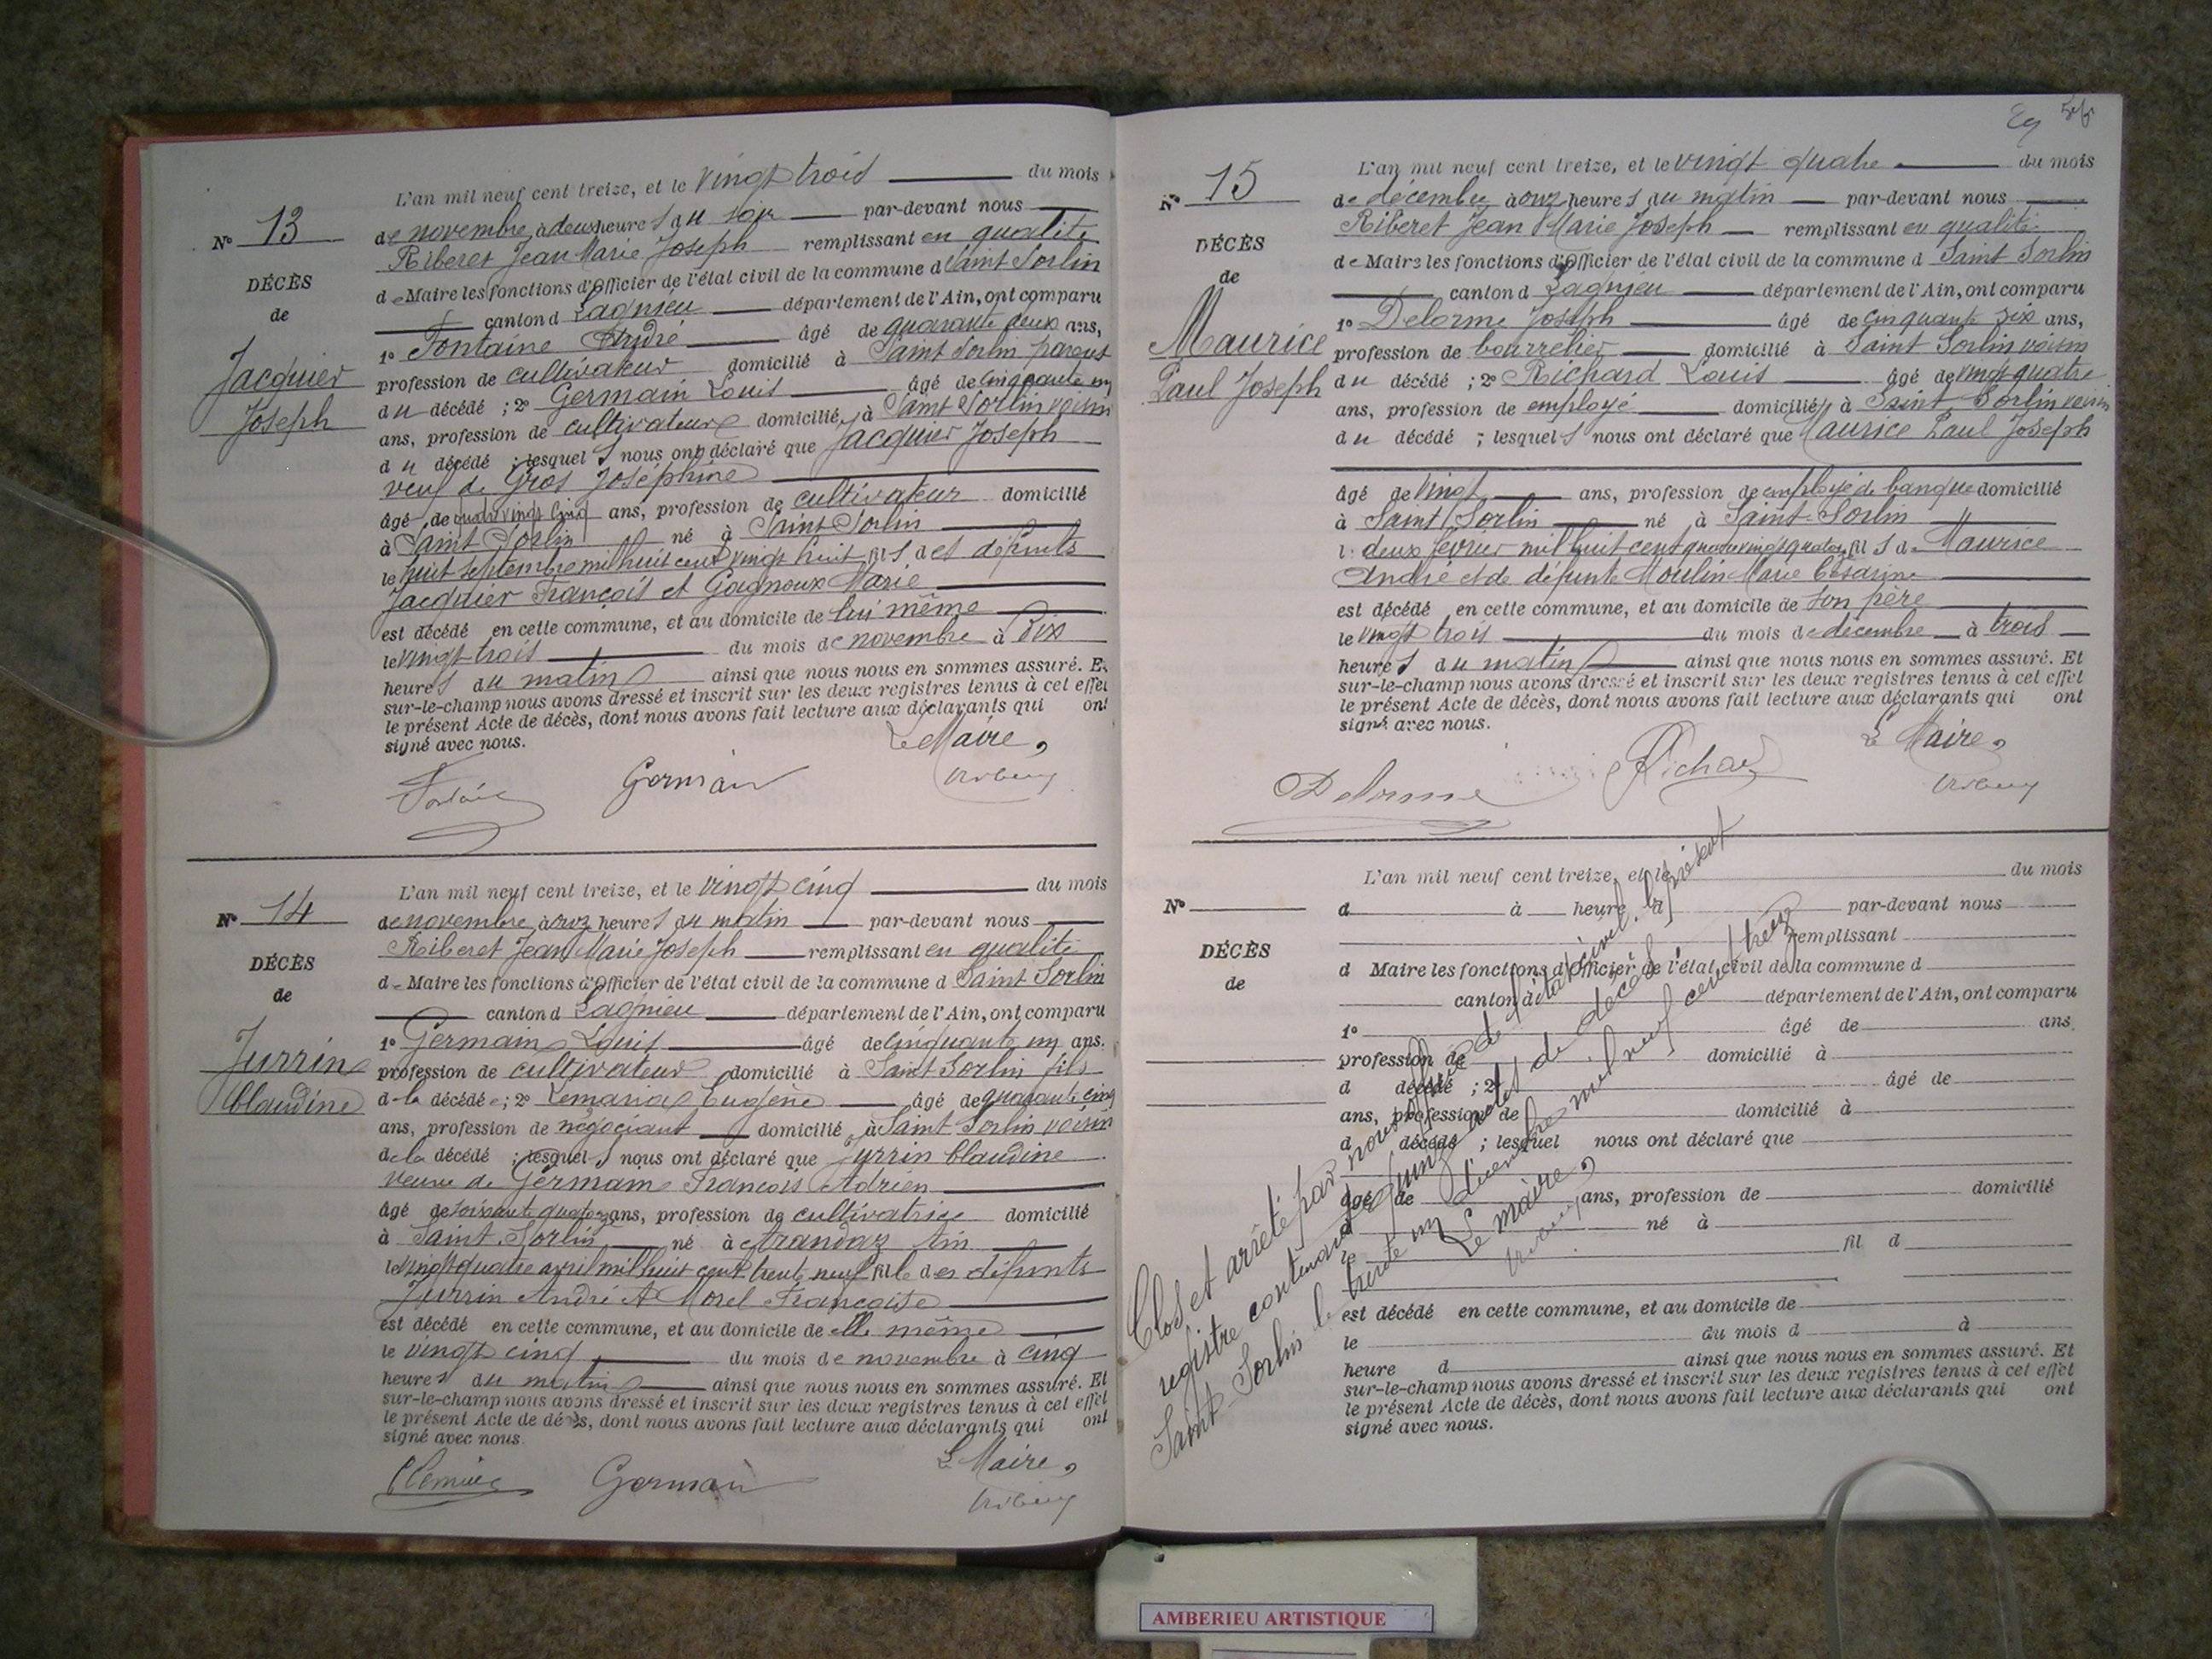 L'an mil neuf cent treize, et le vingt trois du mois
de novembre à deux heures du soir par-devant nous
Riberet Jean Marie Joseph remplissant en qualité
de Maire les fonctions d'Officier de l'état civil de la commune d Saint Sorlin
canton d Lagnieu département de l'Ain, ont comparu
1º Fontaine André âgé de quarante deux ans,
profession de cultivateur domicilié à Saint Sorlin parent
du décédé ; 2º Germain Louis âgé de cinquante un
ans, profession de cultivateur domiciliés à Saint Sorlin voisin
du décédé ; lesquels nous ont déclaré que Jacquier Joseph
veuf de Gros Joséphine
âgé de quatre vingt cinq ans, profession de cultivateur domicilié
à Saint Sorlin né à Saint Sorlin
le huit septembre mil huit cent vingt huit fils des défunts
Jacquier François et Gagnoux Marie
est décédé en cette commune, et au domicile de lui même
le vingt trois du mois de novembre à dix
heures du matin ainsi que nous nous en sommes assuré. Et
sur-le-champ nous avons dressé et inscrit sur les deux registres tenus à cet effet
le présent Acte de décès, dont nous avons fait lecture aux déclarants qui ont
signé avec nous.
Le Maire,
Germain
Nº 13
DÉCÈS
de
Jacquier
Joseph
L'an mil neuf cent treize, et le vingt cinq du mois
de novembre à onze heures du matin par-devant nous
Riberet Jean Marie Joseph remplissant en qualité
de Maire les fonctions d'Officier de l'état civil de la commune d Saint Sorlin
canton d Lagnieu département de l'Ain, ont comparu
1º Germain Louis âgé de cinquante un ans.
profession de cultivateur domicilié à Saint Sorlin fils
de la décédée ; 2º Lemaria Eugène âgé de quarante cinq
ans, profession de négociant domiciliés à Saint Sorlin voisin
de la décédé ; lesquels nous ont déclaré que Jurrin Claudine
veuve de Germain François Adrien
âgé de soixante quatorze ans, profession de cultivatrice domicilié
à Saint Sorlin né à Arandaz Ain
le vingt quatre avril mil huit cent trente neuf fille des défunts
Jurrin André et Morel Françoise
est décédé en cette commune, et au domicile de elle même
le vingt cinq du mois de novembre à cinq
heures du matin ainsi que nous nous en sommes assuré. Et
sur-le-champ nous avons dressé et inscrit sur les deux registres tenus à cet effet
le présent Acte de décès, dont nous avons fait lecture aux déclarants qui ont
signé avec nous.
Le Maire,
Germain
Nº 14
DÉCÈS
de
Jurrin
Claudine
29
L'an mil neuf cent treize, et le vingt quatre du mois
de décembre à onze heures du matin par-devant nous
Riberet Jean Marie Joseph remplissant en qualité
de Maire les fonctions d'Officier de l'état civil de la commune d Saint Sorlin
canton d Lagnieu département de l'Ain, ont comparu
1º Delorme Joseph âgé de cinquante six ans,
profession de bourrelier domicilié à Saint Sorlin voisin
du décédé ; 2º Richard Louis âgé de vingt quatre
ans, profession de employé domiciliés à Saint Sorlin voisin
du décédé ; lesquels nous ont déclaré que Maurice Paul Joseph
âgé de vingt ans, profession de employé de banque domicilié
à Saint Sorlin né à Saint-Sorlin
le deux février mil huit cent quatre vingt quatorze fils de Maurice
André et de défunte Moulin Marie Césarine
est décédé en cette commune, et au domicile de son père
le vingt trois du mois de décembre à trois
heures du matin ainsi que nous nous en sommes assuré. Et
sur-le-champ nous avons dressé et inscrit sur les deux registres tenus à cet effet
le présent Acte de décès, dont nous avons fait lecture aux déclarants qui ont
signé avec nous.
Le Maire,
Delorme
Richard
Nº 15
DÉCÈS
de
Maurice
Paul Joseph
L'an mil neuf cent treize, et le du mois
d à heure d par-devant nous
remplissant
d Maire les fonctions d'Officier de l'état civil de la commune d
canton d département de l'Ain, ont comparu
1º âgé de ans
profession de domicilié à
d décédé ; 2º âgé de
ans, profession de domicilié à
d décédé ; lesquel nous ont déclaré que
âgé de ans, profession de domicilié
à né à
le fil d
est décédé en cette commune, et au domicile de
le du mois d à
heure d ainsi que nous nous en sommes assuré. Et
sur-le-champ nous avons dressé et inscrit sur les deux registres tenus à cet effet
le présent Acte de décès, dont nous avons fait lecture aux déclarants qui ont
signé avec nous.
Nº
DÉCÈS
de
Clos et arrêté par nous officier de l'état civil, le présent
registre contenant quinze actes de décès
Saint-Sorlin le trente un décembre mil neuf cent treize
Le Maire,
AMBERIEU ARTISTIQUE